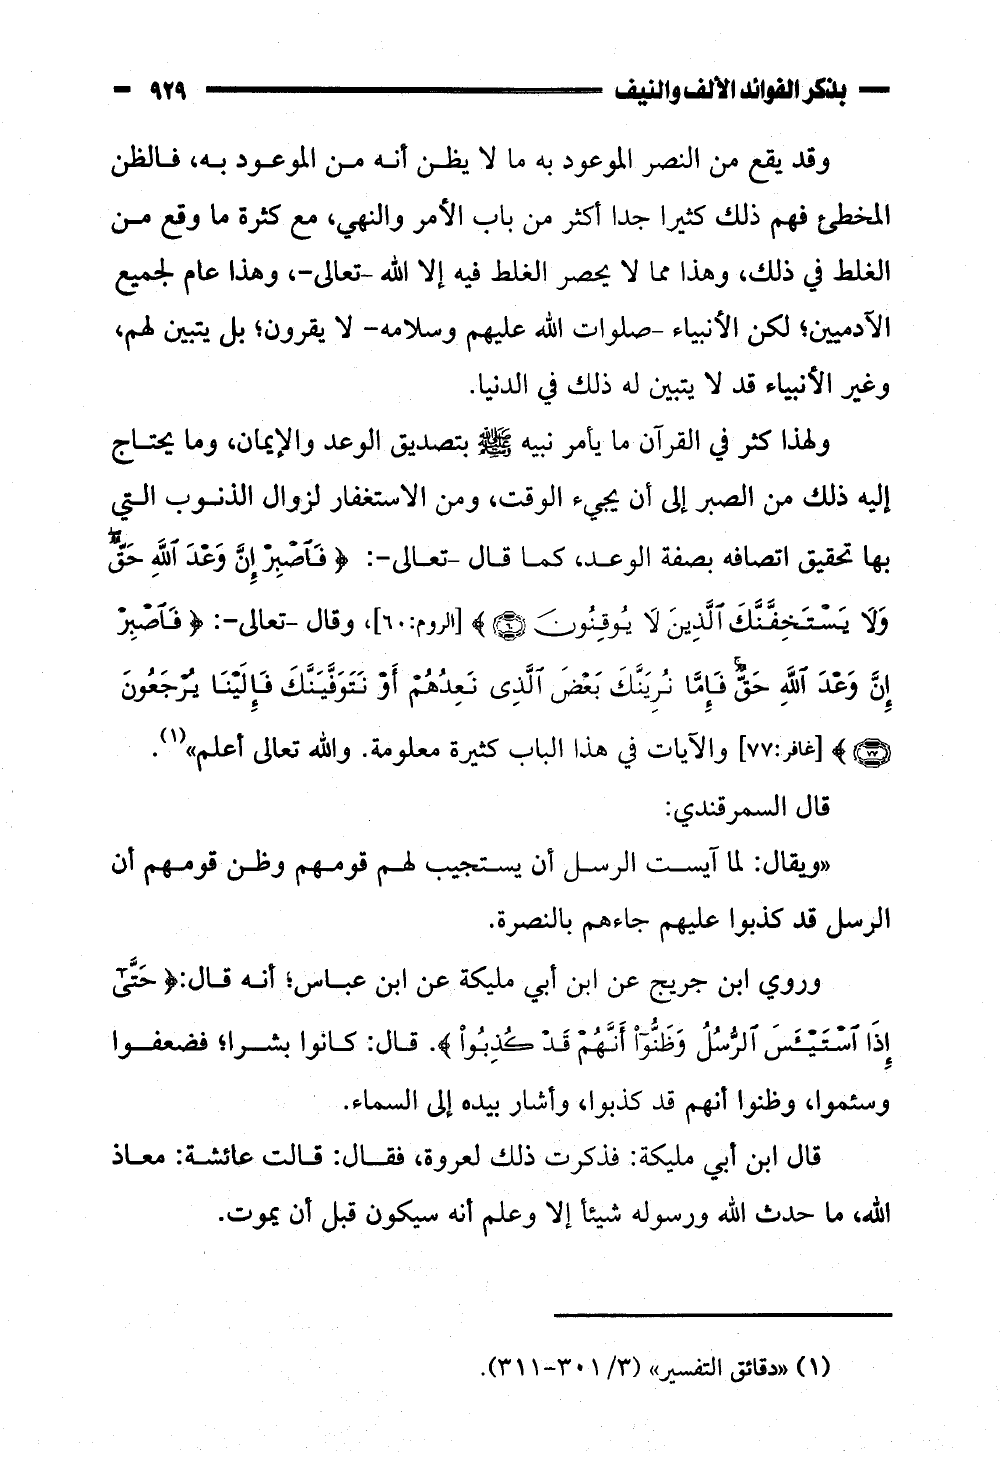 بذكر الفوائد الألف والنيف ٩٢٩
وقد يقع من النصر الموعود به ما لا يظن أنه من الموعود به، فالظن
المخطئ فهم ذلك كثيرا جدا أكثر من باب الأمر والنهي، مع كثرة ما وقع من
الغلط في ذلك، وهذا مما لا يحصر الغلط فيه إلا الله -تعالى-، وهذا عام لجميع
الآدميين؛ لكن الأنبياء -صلوات الله عليهم وسلامه- لا يقرون؛ بل يتبين لهم،
وغير الأنبياء قد لا يتبين له ذلك في الدنيا.
ولهذا كثر في القرآن ما يأمر نبيه ﷺ بتصديق الوعد والإيمان، وما يحتاج
إليه ذلك من الصبر إلى أن يجيء الوقت، ومن الاستغفار لزوال الذنوب التي
بها تحقيق اتصافه بصفة الوعد، كما قال -تعالى-: ﴿ فَٱصْبِرْ إِنَّ وَعْدَ ٱللَّهِ حَقٌّۖ
وَلَا يَسْتَخِفَّنَّكَ ٱلَّذِينَ لَا يُوقِنُونَ ۝٦٠ ﴾ [الروم:٦٠]، وقال -تعالى-: ﴿ فَٱصْبِرْ
إِنَّ وَعْدَ ٱللَّهِ حَقٌّۚ فَإِمَّا نُرِيَنَّكَ بَعْضَ ٱلَّذِى نَعِدُهُمْ أَوْ نَتَوَفَّيَنَّكَ فَإِلَيْنَا يُرْجَعُونَ
۝٧٧ ﴾ [غافر:٧٧] والآيات في هذا الباب كثيرة معلومة. والله تعالى أعلم»(١).
قال السمرقندي:
«ويقال: لما آيست الرسل أن يستجيب لهم قومهم وظن قومهم أن
الرسل قد كذبوا عليهم جاءهم بالنصرة.
وروي ابن جريج عن ابن أبي مليكة عن ابن عباس؛ أنه قال:﴿ حَتَّىٰٓ
إِذَا ٱسْتَيْـَٔسَ ٱلرُّسُلُ وَظَنُّوٓا۟ أَنَّهُمْ قَدْ كُذِبُوا۟ ﴾. قال: كانوا بشرا؛ فضعفوا
وسئموا، وظنوا أنهم قد كذبوا، وأشار بيده إلى السماء.
قال ابن أبي مليكة: فذكرت ذلك لعروة، فقال: قالت عائشة: معاذ
الله، ما حدث الله ورسوله شيئأ إلا وعلم أنه سيكون قبل أن يموت.
(١) «دقائق التفسير» (٣/ ٣٠١-٣١١).